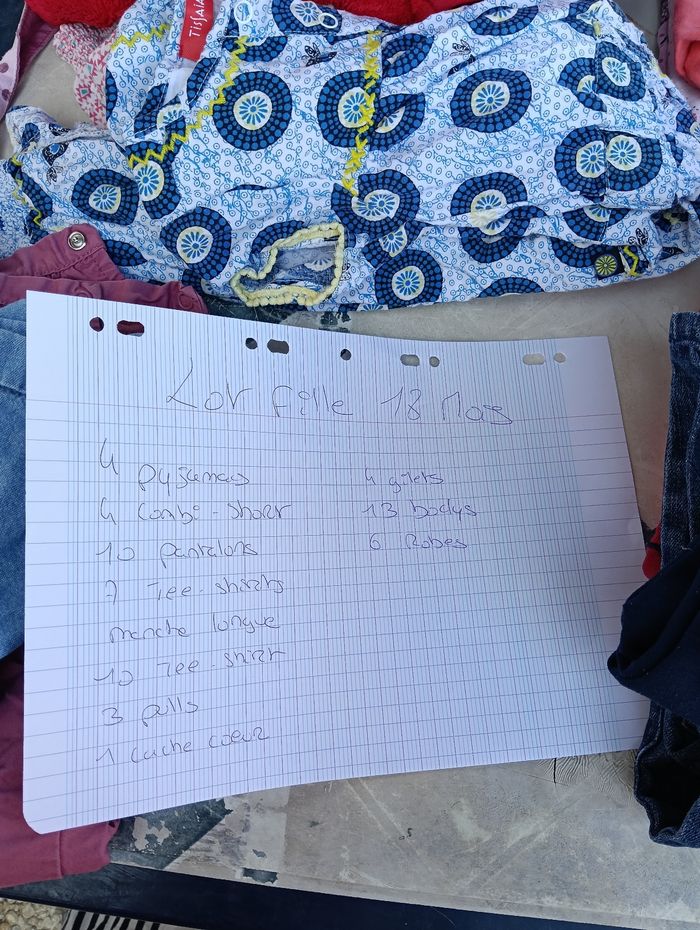 TISSAIA
Lot fille 18 Mois
4 pyjamas
4 Combi-short
10 pantalons
7 Tee-shirts
manche longue
10 Tee-shirt
3 pulls
1 cache coeur
4 gilets
13 bodys
6 Robes